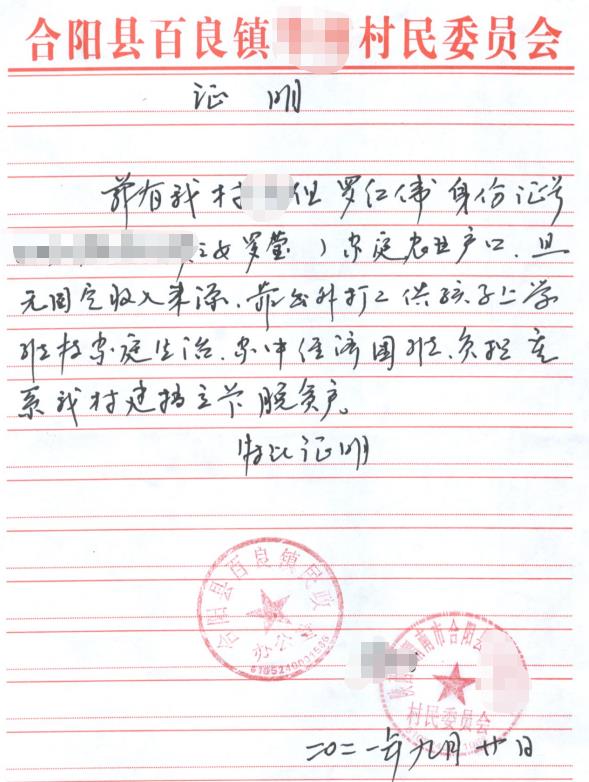 合阳县百良镇 村民委员会
证 明
兹有我村 组 罗仁伟 身份证号
之女罗莹）家庭农业户口、且
无固定收入来源、靠出外打工供孩子上学
维持家庭生活、家中经济困难、负担重
系我村建档立卡脱贫户。
特此证明
合阳县百良镇民政
办公室
渭南市合阳
村民委员会
二〇二一年九月廿日